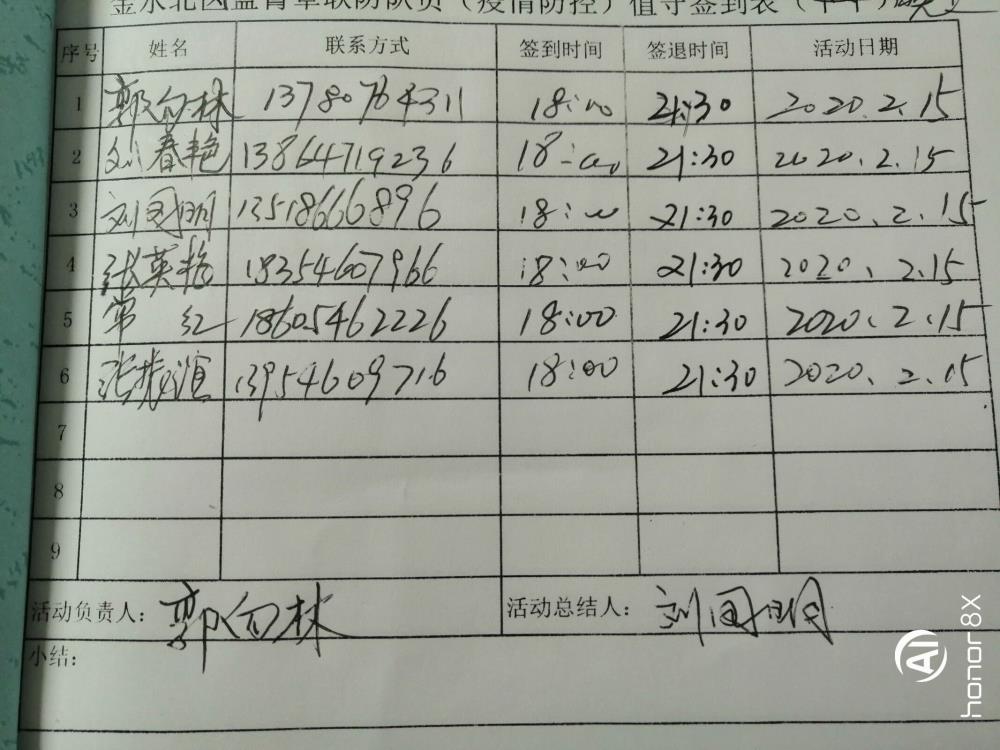 金水北区蓝青草联防队员（疫情防控）值守签到表
序号 姓名 联系方式 签到时间 签退时间 活动日期
1 郭向林 13780764311 18:00 21:30 2020.2.15
2 刘春艳 13864719236 18:00 21:30 2020.2.15
3 刘国明 13518666896 18:00 21:30 2020.2.15
4 张英艳 18354607966 18:00 21:30 2020.2.15
5 常红 18605462226 18:00 21:30 2020.2.15
6 张振谊 13954609716 18:00 21:30 2020.2.15
7
8
9
活动负责人：郭向林 活动总结人：刘国明
小结：
AI
honor 8X